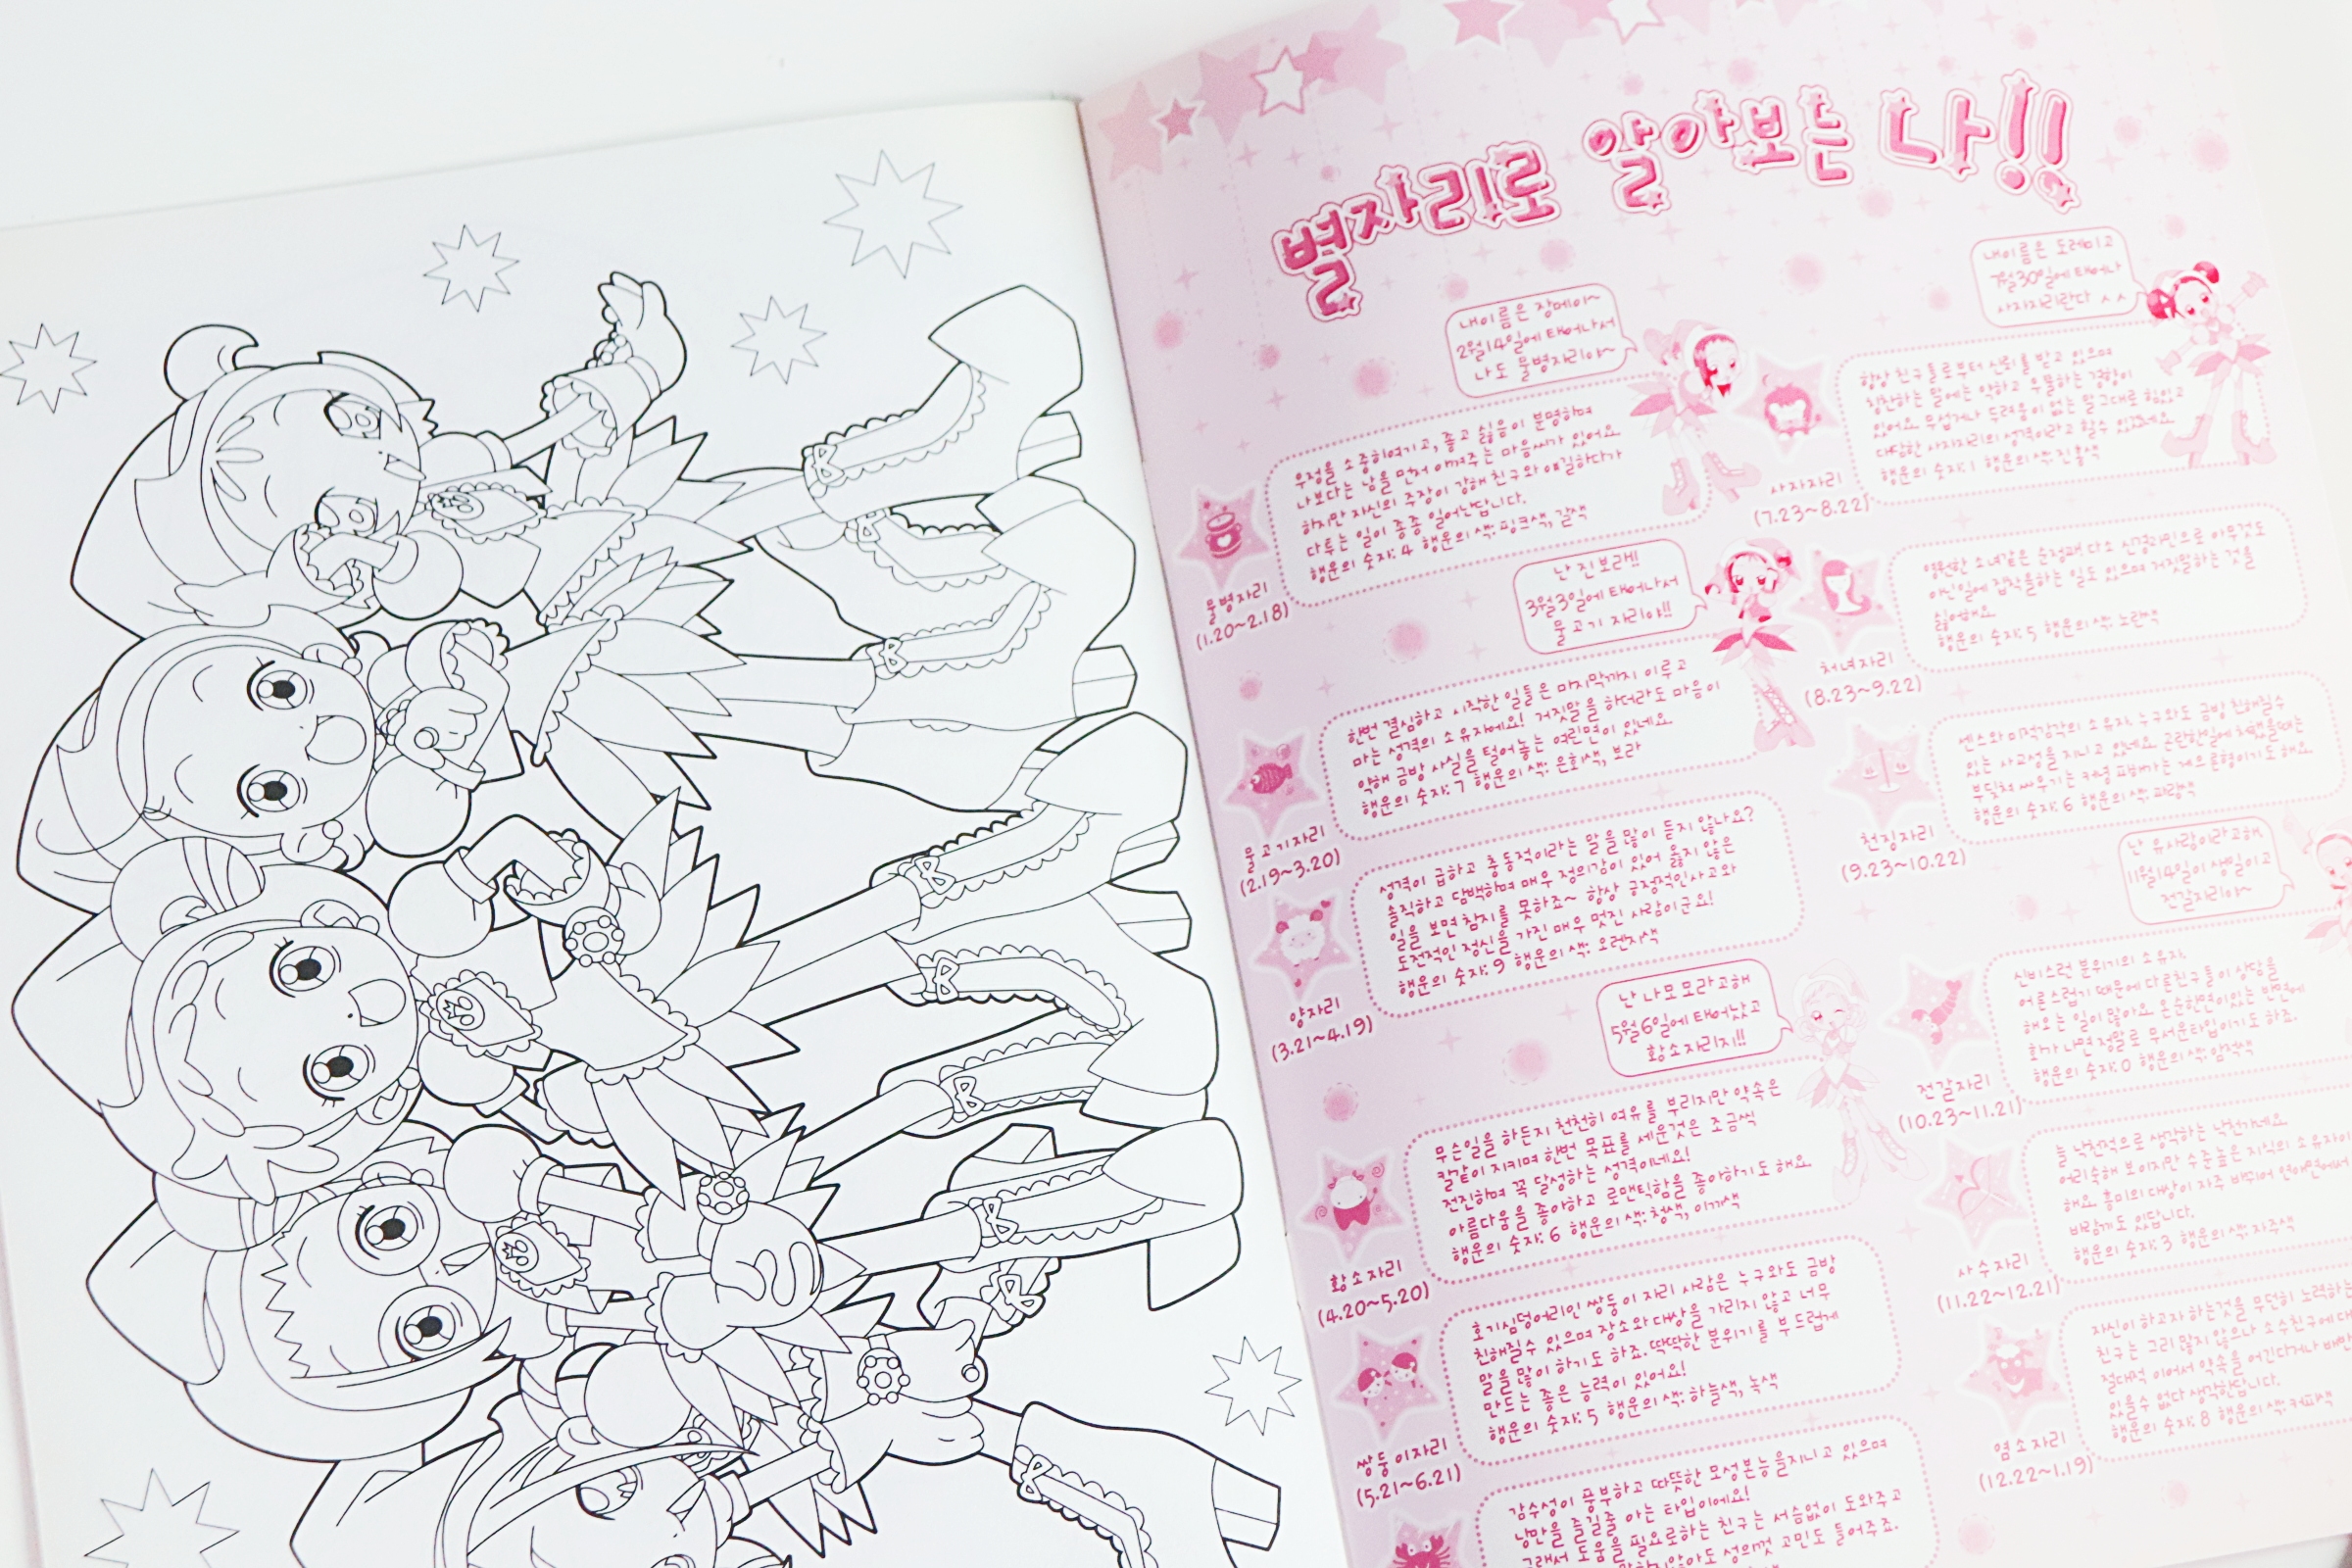 별자리로 알아보는 나!!
내이름은 장메이~
2월14일에 태어나서
나도 물병자리야~
우정을 소중히여기고, 좋고 싫음이 분명하며
나보다는 남을 먼저 아껴주는 마음씨가 있어요
하지만 자신의 주장이 강해 친구와 얘길하다가
다투는 일이 종종 일어난답니다.
행운의 숫자: 4 행운의 색: 핑크색, 갈색
물병자리
(1.20~2.18)
난 진보라!!
3월3일에 태어나서
물고기 자리야!!
한번 결심하고 시작한 일들은 마지막까지 이루고
마는 성격의 소유자예요! 거짓말을 하더라도 마음이
약해 금방 사실을 털어놓는 여린면이 있네요
행운의 숫자: 7 행운의 색: 은회색, 보라
물고기자리
(2.19~3.20)
성격이 급하고 충동적이라는 말을 많이 듣지 않나요?
솔직하고 담백하며 매우 정의감이 있어 옳지 않은
일을 보면 참지를 못하죠~ 항상 긍정적인사고와
도전적인 정신을 가진 매우 멋진 사람이군요!
행운의 숫자: 9 행운의 색: 오렌지색
양자리
(3.21~4.19)
난 나모모라고해
5월6일에 태어났고
황소자리지!!
무슨일을 하든지 천천히 여유를 부리지만 약속은
칼같이 지키며 한번 목표를 세운것은 조금씩
전진하며 꼭 달성하는 성격이네요!
아름다움을 좋아하고 로맨틱함을 좋아하기도 해요
행운의 숫자: 6 행운의 색: 청색, 이끼색
황소자리
(4.20~5.20)
호기심덩어리인 쌍둥이 자리 사람은 누구와도 금방
친해질수 있으며 장소와 대상을 가리지 않고 너무
말을 많이 하기도 하죠. 딱딱한 분위기를 부드럽게
만드는 좋은 능력이 있어요!
행운의 숫자: 5 행운의 색: 하늘색, 녹색
쌍둥이자리
(5.21~6.21)
감수성이 풍부하고 따뜻한 모성본능을지니고 있으며
낭만을 즐길줄 아는 타입이에요!
그래서 도움을 필요로하는 친구는 서슴없이 도와주고
말하지않아도 성의껏 고민도 들어주죠.
내이름은 도레미고
7월30일에 태어나
사자자리란다 ^^
항상 친구들로부터 신뢰를 받고 있으며
칭찬하는 말에는 약하고 우쭐하는 경향이
있어요 무섭거나 두려움이 없는 말 그대로 힘있고
대담한 사자자리의 성격이라고 할수 있겠네요
행운의 숫자: 1 행운의 색: 진홍색
사자자리
(7.23~8.22)
영원한 소녀같은 순정파 다소 신경과민으로 아무것도
아닌일에 집착을하는 일도 있으며 거짓말하는 것을
싫어해요
행운의 숫자: 5 행운의 색: 노란색
처녀자리
(8.23~9.22)
센스와 미적감각의 소유자 누구와도 금방 친해질수
있는 사교성을 지니고 있네요 곤란한일에 처했을때는
부딪쳐 싸우기는 커녕 피해가는 게으름쟁이기도 해요
행운의 숫자: 6 행운의 색: 파랑색
천징자리
(9.23~10.22)
난 유사랑이라고해
11월14일이 생일이고
전갈자리야~
신비스런 분위기의 소유자
어른스럽기 때문에 다른친구들이 상담을
해오는 일이 많아요 온순한면이있는 반면에
화가 나면 정말로 무서운타입이기도 하죠.
행운의 숫자: 0 행운의 색: 암적색
전갈자리
(10.23~11.21)
늘 낙천적으로 생각하는 낙천가네요
어리숙해 보이지만 수준높은 지식의 소유자이
해요 흥미의 대상이 자주 바뀌어 연애면에서
바람끼도 있답니다.
행운의 숫자: 3 행운의 색: 자주색
사수자리
(11.22~12.21)
자신이 하고자 하는것을 무던히 노력하
친구는 그리 많지 않으나 소수친구에 대
절대적 이어서 약속을 어긴다거나 배반
있을수 없다 생각한답니다.
행운의 숫자: 8 행운의 색: 커피색
염소자리
(12.22~1.19)